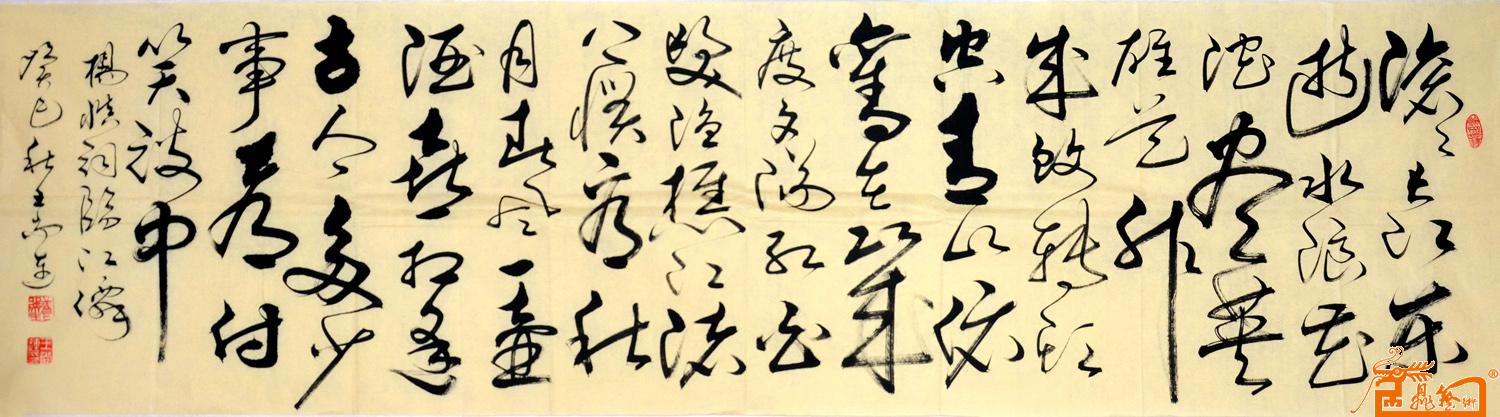 滚〻长江东
逝水浪花
淘尽英
雄是非
成败转头
空青山依
舊在幾
度夕阳红白
髮渔樵江渚
上惯看秋
月春风一壶
酒喜相逢
古今多少
事都付
笑谈中
楊慎词临江仙
癸巳秋王